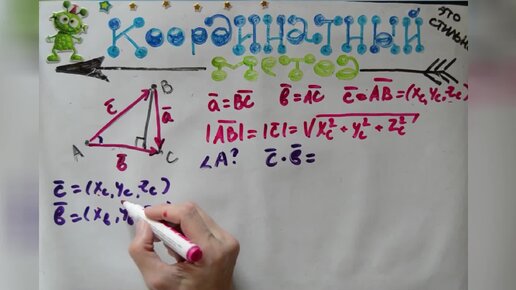 Координатный
метод
это
стильно
B
c̅
a̅
A
b̅
C
a̅ = B̅C̅ b̅ = A̅C̅ c̅ = A̅B̅ = (x_c, y_c, z_c)
|A̅B̅| = |c̅| = √(x_c² + y_c² + z_c²)
∠A? c̅ · b̅ =
c̅ = (x_c, y_c, z_c)
b̅ = (x_b, y_b